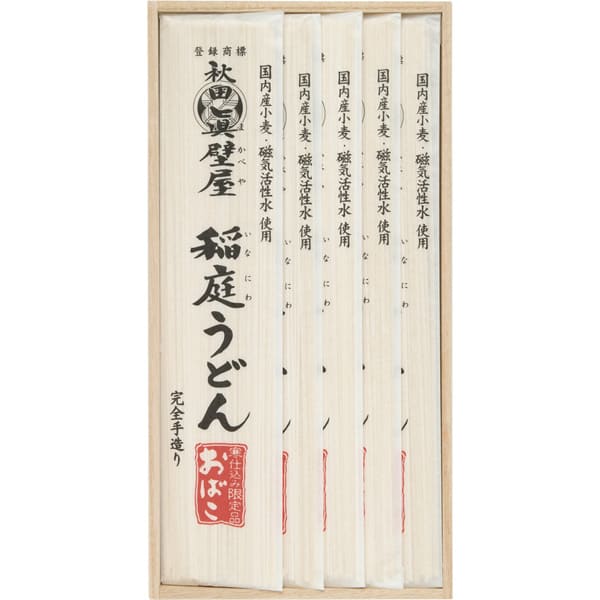 登録商標
秋田眞壁屋
まかべや
稲庭うどん
いなにわ
完全手造り
寒仕込み限定品
おばこ
国内産小麦・磁気活性水 使用
国内産小麦・磁気活性水 使用
国内産小麦・磁気活性水 使用
国内産小麦・磁気活性水 使用
国内産小麦・磁気活性水 使用